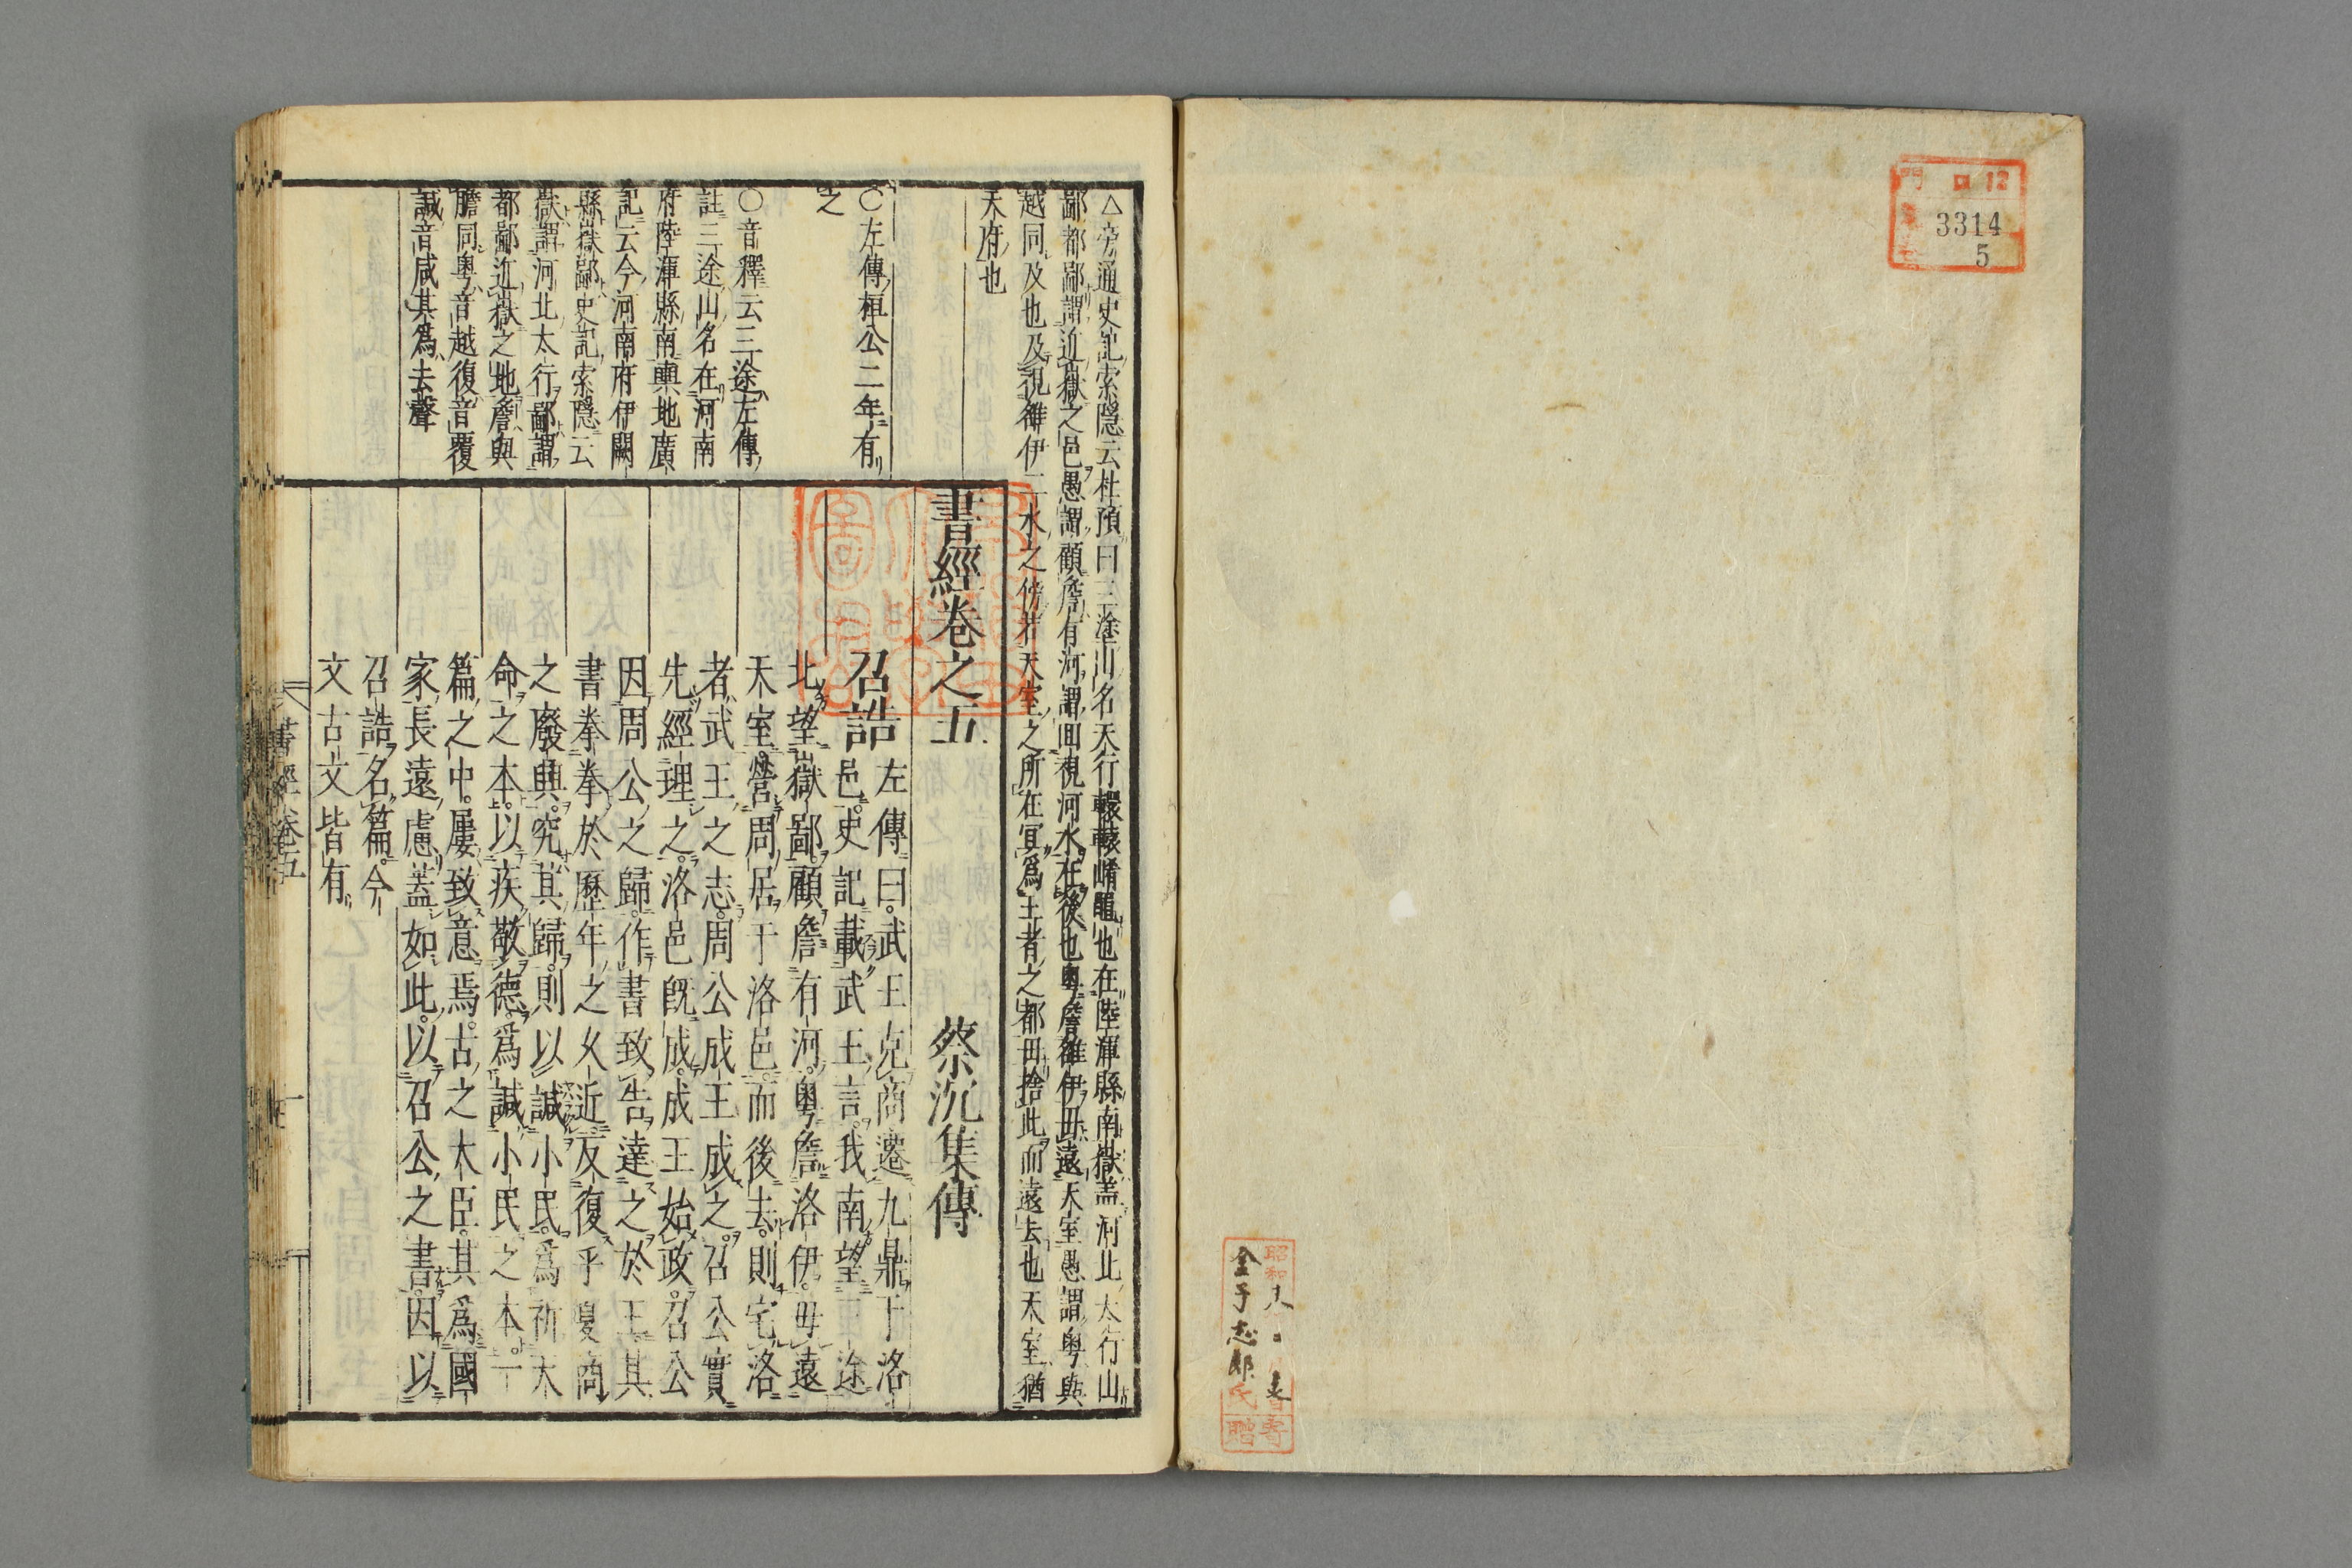 門 ロ 12
3314
5
昭和十八
寄
金子志郎氏
贈
△旁通史記索隱云杜預曰三塗山名大行轘轅崤黽也在陸渾縣南嶽盖河北太行山
鄙都鄙謂近嶽之邑愚謂顧詹有河謂回視河水在後也粤詹雒伊毋遠天室愚謂粤與
越同及也及視雒伊二水之傍若天室之所在冥爲王者之都毋捨此而遠去也天室猶
天府也
○左傳桓公二年有
之
○音釋云三途左傳
註三途山名在河南
府陸渾縣南輿地廣
記云今河南府伊闕
縣嶽鄙史記索隱云
嶽謂河北太行鄙謂
都鄙近嶽之地詹與
瞻同粤音越復音覆
諴音咸其爲去聲
書經卷之五 蔡沉集傳
召誥
左傳曰武王克商遷九鼎于洛
邑史記載武王言我南望三途
北望嶽鄙顧詹有河粤詹洛伊毋遠
天室營周居于洛邑而後去則宅洛
者武王之志周公成王成之召公實
先經理之洛邑旣成成王始政召公
因周公之歸作書致告達之於王其
書拳拳於歷年之久近反復乎夏商
之廢興究其歸則以諴小民爲祈天
命之本以疾敬德爲諴小民之本一
篇之中屢致意焉古之大臣其爲國
家長遠慮蓋如此以召公之書因以
召誥名篇今
文古文皆有
書經卷五 一